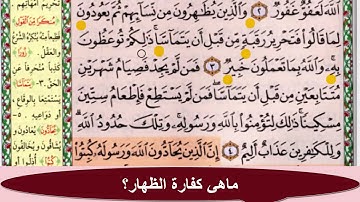 ٱللَّهَ لَعَفُوٌّ غَفُورٌ ٢ وَٱلَّذِينَ يُظَٰهِرُونَ مِن نِّسَآئِهِمْ ثُمَّ يَعُودُونَ
لِمَا قَالُوا۟ فَتَحْرِيرُ رَقَبَةٍ مِّن قَبْلِ أَن يَتَمَآسَّا ذَٰلِكُمْ تُوعَظُونَ
بِهِۦ وَٱللَّهُ بِمَا تَعْمَلُونَ خَبِيرٌ ٣ فَمَن لَّمْ يَجِدْ فَصِيَامُ شَهْرَيْنِ
مُتَتَابِعَيْنِ مِن قَبْلِ أَن يَتَمَآسَّا فَمَن لَّمْ يَسْتَطِعْ فَإِطْعَامُ سِتِّينَ
مِسْكِينًا ذَٰلِكَ لِتُؤْمِنُوا۟ بِٱللَّهِ وَرَسُولِهِۦ وَتِلْكَ حُدُودُ ٱللَّهِ
وَلِلْكَٰفِرِينَ عَذَابٌ أَلِيمٌ ٤ إِنَّ ٱلَّذِينَ يُحَآدُّونَ ٱللَّهَ وَرَسُولَهُۥ كُبِتُوا۟
ماهى كفارة الظهار؟